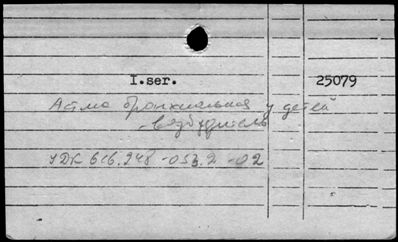 I.ser. 25079
Астма бронхиальная у детей
- возбудитель
УДК 616.248-053.2-02